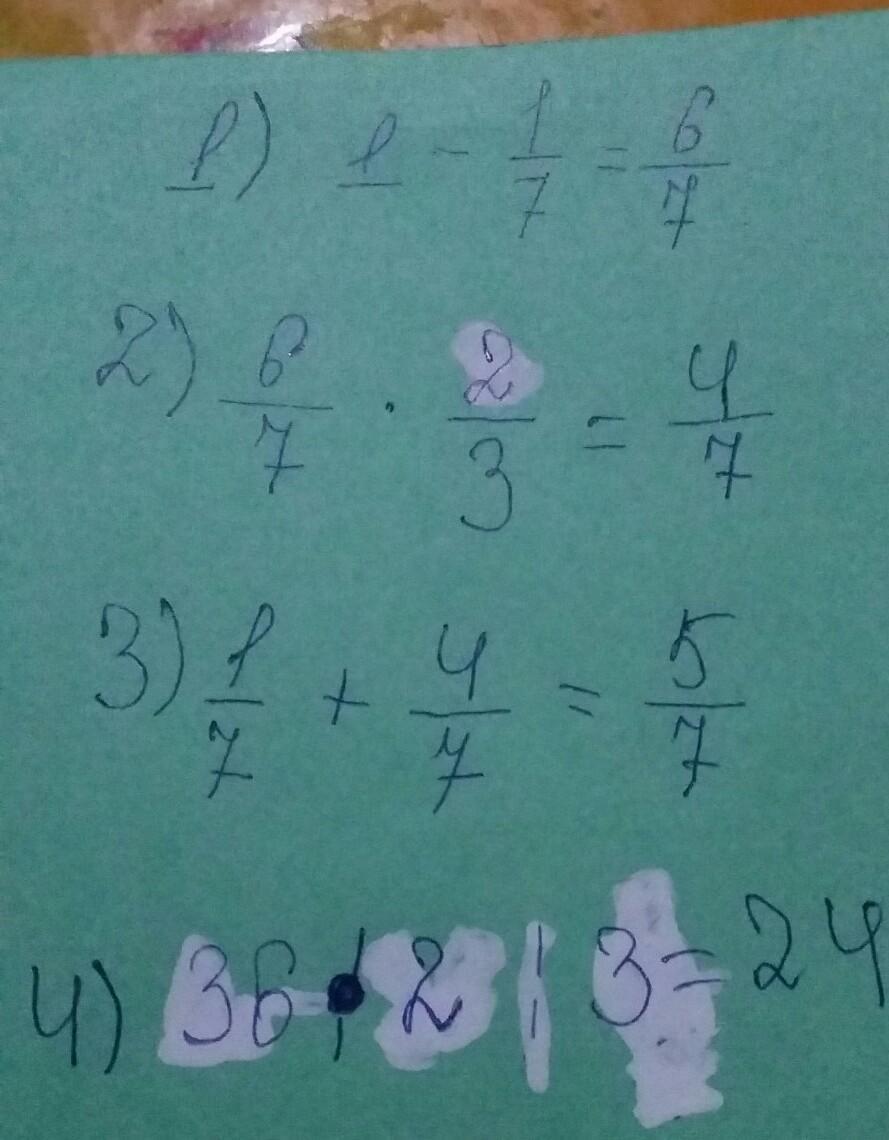 1) 1 - 1/7 = 6/7
2) 6/7 · 2/3 = 4/7
3) 1/7 + 4/7 = 5/7
4) 36 · 2 : 3 = 24